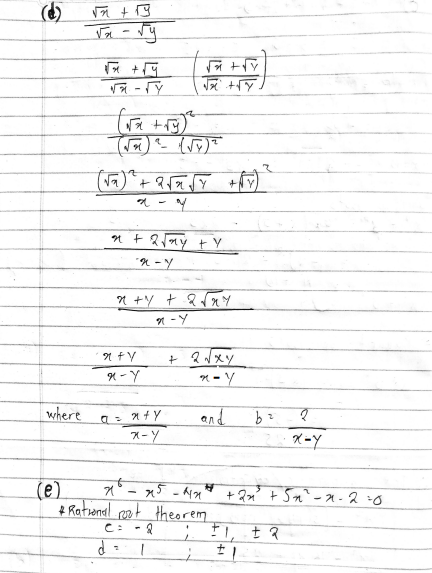 (d) (√x + √y) / (√x − √y)
(√x + √y) / (√x − √y) ((√x + √y) / (√x + √y))
(√x + √y)² / ((√x)² − (√y)²)
((√x)² + 2√x√y + (√y)²) / (x − y)
(x + 2√xy + y) / (x − y)
(x + y + 2√xy) / (x − y)
(x + y) / (x − y) + 2√xy / (x − y)
where a = (x + y) / (x − y) and b = 2 / (x − y)
(e) x⁶ − x⁵ − 4x⁴ + 2x³ + 5x² − x − 2 = 0
* Rational root theorem
c = −2 ; ±1, ±2
d = 1 ; ±1